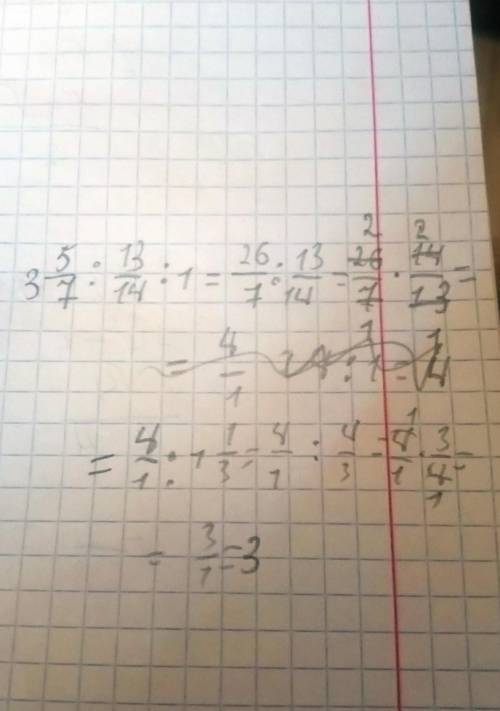 3 5/7 : 13/14 : 1 = 26/7 : 13/14 = 26/7 · 14/13 =
= 4/1
= 4/1 : 1 1/3 = 4/1 : 4/3 = 4/1 · 3/4 =
= 3/1 = 3